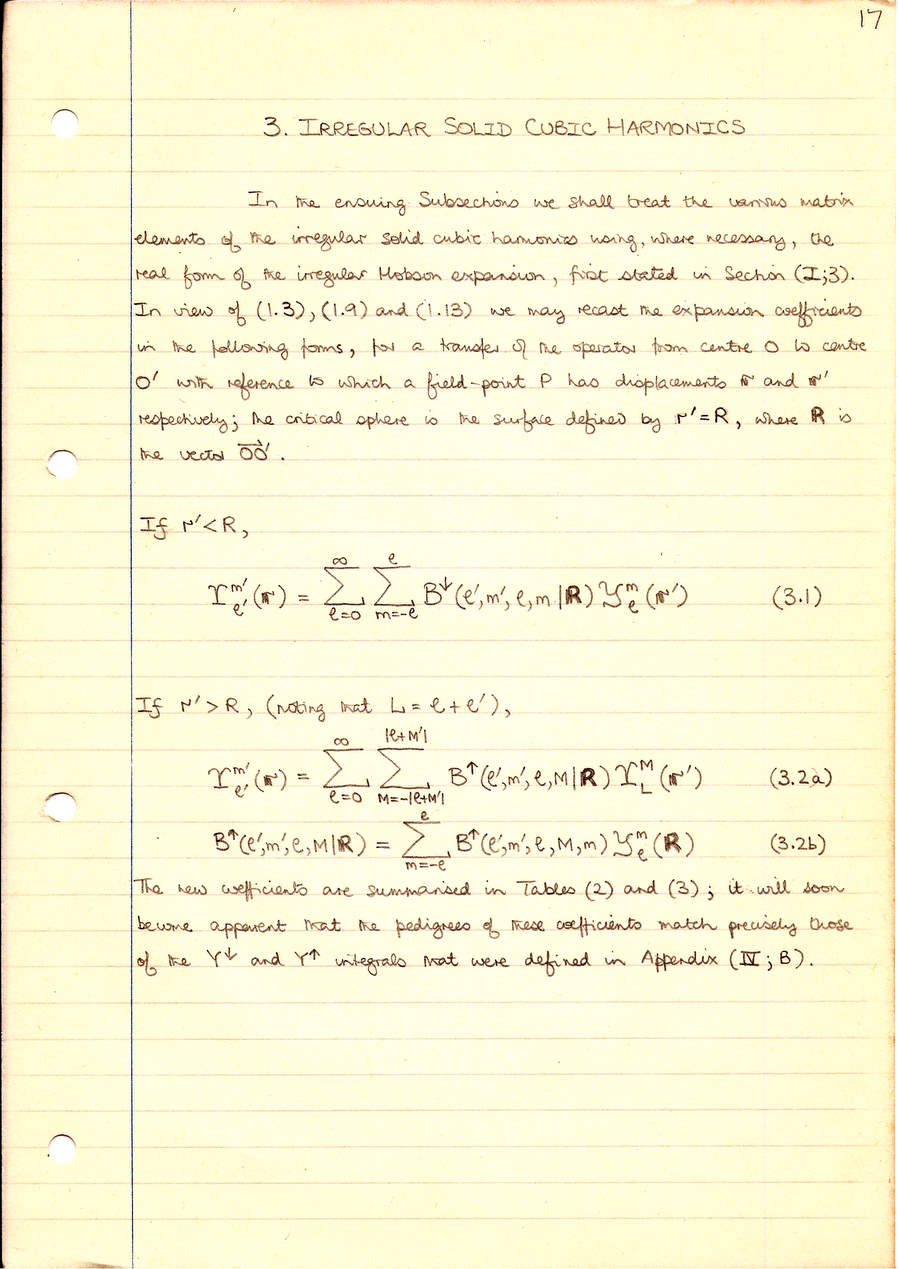 17
3. IRREGULAR SOLID CUBIC HARMONICS
In the ensuing Subsections we shall treat the various matrix
elements of the irregular solid cubic harmonics using, where necessary, the
real form of the irregular Hobson expansion, first stated in Section (I;3).
In view of (1.3), (1.9) and (1.13) we may recast the expansion coefficients
in the following forms, for a transfer of the operator from centre O to centre
O′ with reference to which a field-point P has displacements 𝐫 and 𝐫′
respectively; the critical sphere is the surface defined by r′=R, where 𝐑 is
the vector OO′⃗.
If r′<R,
ϒ_{ℓ′}^{m′}(𝐫) = ∑_{ℓ=0}^{∞} ∑_{m=-ℓ}^{ℓ} B↓(ℓ′,m′,ℓ,m|𝐑) 𝒴_ℓ^m(𝐫′) (3.1)
If r′>R, (noting that L = ℓ+ℓ′),
ϒ_{ℓ′}^{m′}(𝐫) = ∑_{ℓ=0}^{∞} ∑_{M=-|ℓ+M′|}^{|ℓ+M′|} B↑(ℓ′,m′,ℓ,M|𝐑) ϒ_L^M(𝐫′) (3.2a)
B↑(ℓ′,m′,ℓ,M|𝐑) = ∑_{m=-ℓ}^{ℓ} B↑(ℓ′,m′,ℓ,M,m) 𝒴_ℓ^m(𝐑) (3.2b)
The new coefficients are summarised in Tables (2) and (3); it will soon
become apparent that the pedigrees of these coefficients match precisely those
of the Y↓ and Y↑ integrals that were defined in Appendix (IV;B).